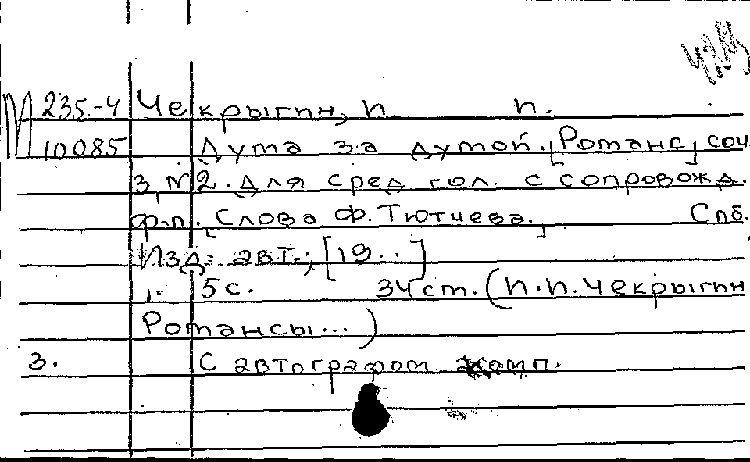 М 235-4 Чекрыгин, П. П.
10085 Дума за думой. [Романс], соч.
3, №2. Для сред. гол. с сопровожд.
ф.п. [Слова Ф. Тютчева.] Спб.
Изд. авт., [19..]
5 с. 34 см. (П. П. Чекрыгин
Романсы...)
3. С автографом комп.